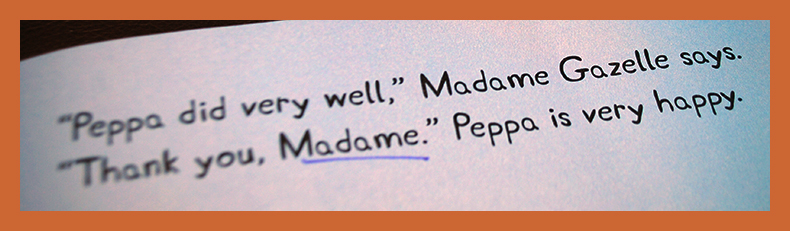 “Peppa did very well,” Madame Gazelle says.
“Thank you, Madame.” Peppa is very happy.